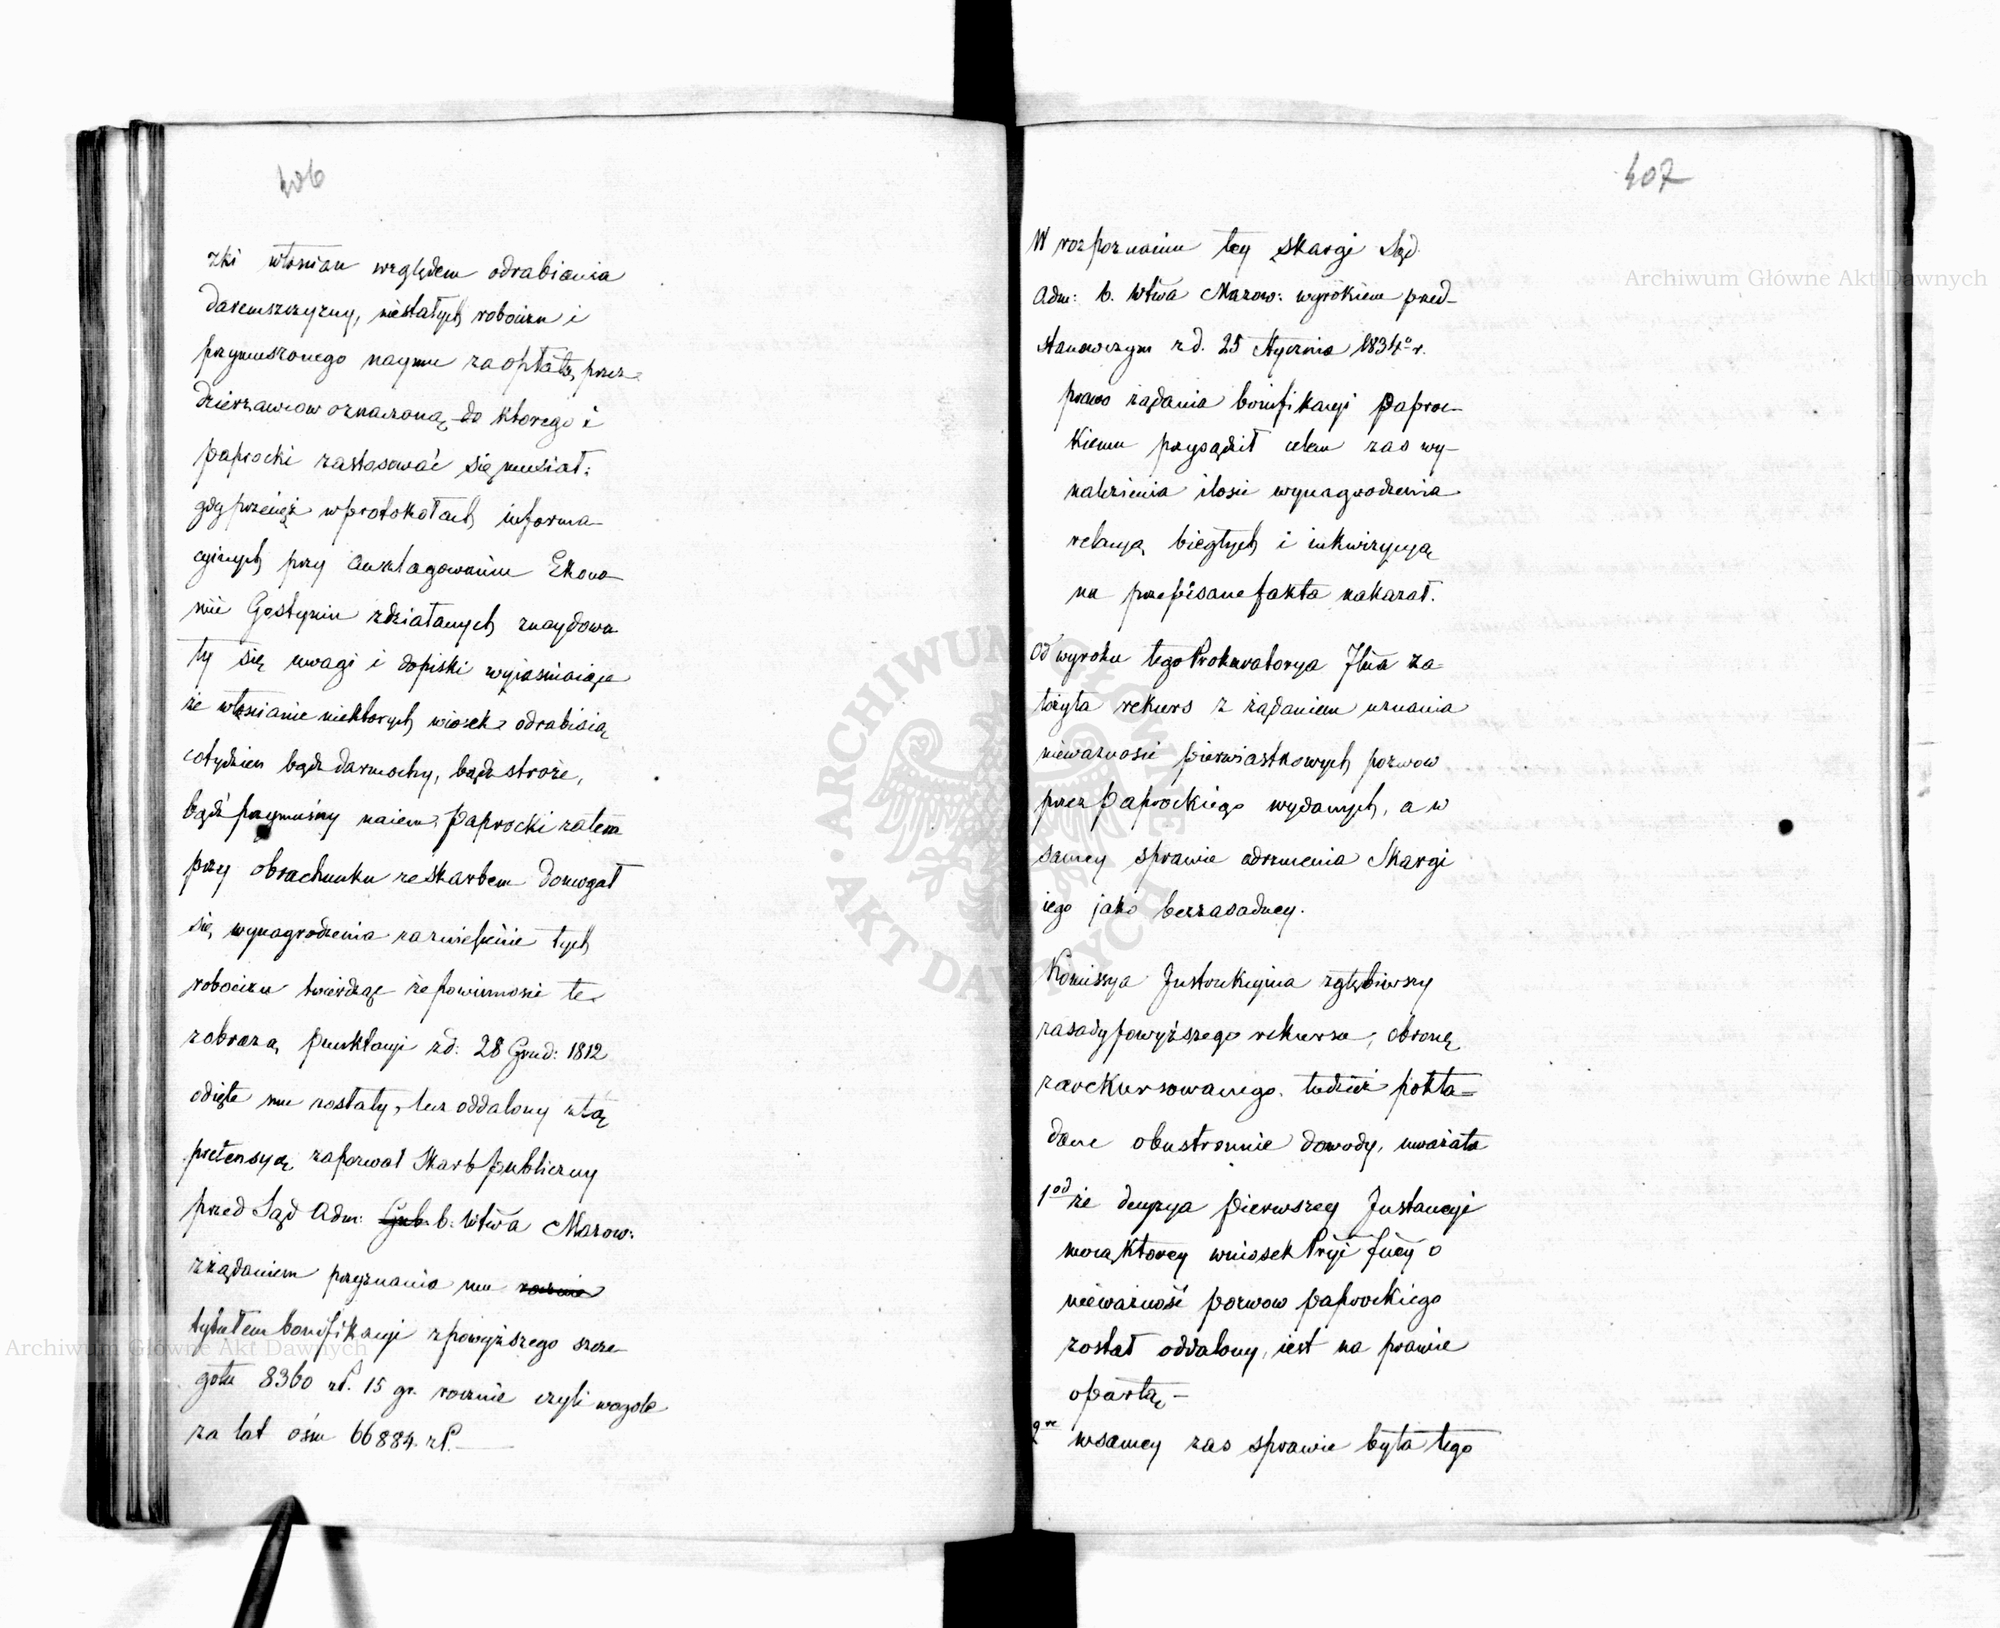 406
zki włościan względem odrabiania
daremszczyzny, niestałych robocizn i
przymuszonego naymu za opłatą, przez
dzierzawcow oznaczoną do ktorego i
Paprocki zastosować się musiał:
gdy przecięż w protokołach informa-
cyinych przy auxlagowaniu Ekono-
mii Gostynin zdziałanych znaydowa
ły się uwagi i dopiski wyjasniaiąje
że włoscianie niektorych wiosek odrabiaią
cotydzien bądz darmochy, bądz stroże,
bądź przymuśny naiem, Paprocki zatem
przy obrachunku ze skarbem domogał
się, wynagrodzenia za zwiefienie tych
robocizn twierdząc że powinnosci te
z obrazą Punktacyi zd: 28 Grud: 1812
odięte mu zostały, lecz oddalony z tą
pretensyą, zapozwał Skarb Publiczny
przed Sąd Adm: Gub. b. Wtwa Mazow:
z żądaniem przyznania mu rocznie
tytułem bonifikacyi z powyższego szcze-
gołu 8360 zł. 15 gr. rocznie czyli wogole
za lat ośm 66884. zł.
407
W rozpoznaniu tey skargi Sąd
Adm: b. Wtwa Mazow: wyrokiem przed-
stanowczym z d. 25 Stycznia 1834º r.
prawo żądania bonifikacyi Paproc-
kiemu przysądził celem zas wy-
nalezienia ilosci wynagrodzenia
relacyą biegłych i inkwizycyą
na przepisane fakta nakazał.
Od wyroku tego Prokuratorya Jlna za-
łożyła rekurs z żądaniem uznania
nieważnosci pierwiastkowych pozwow
przez Paprockiego wydanych, a w
samey sprawie odrzucenia Skargi
iego jako bezzasadney.
Komissya Instrukcyina zgłębiwszy
zasady powyższego rekursu, obronę
zarekursowanego, tudzież pokła-
dane obustronnie dowody, uważała
1od że decyzya pierwszey Instancyi
mocą ktorey wniosek Pryi Jney o
nieważność pozwow Paprockiego
został oddalony, iest na prawie
opartą, -
2re w samey zas sprawie była tego
Archiwum Główne Akt Dawnych
Archiwum Główne Akt Dawnych
ARCHIWUM GŁÓWNE • AKT DAWNYCH •